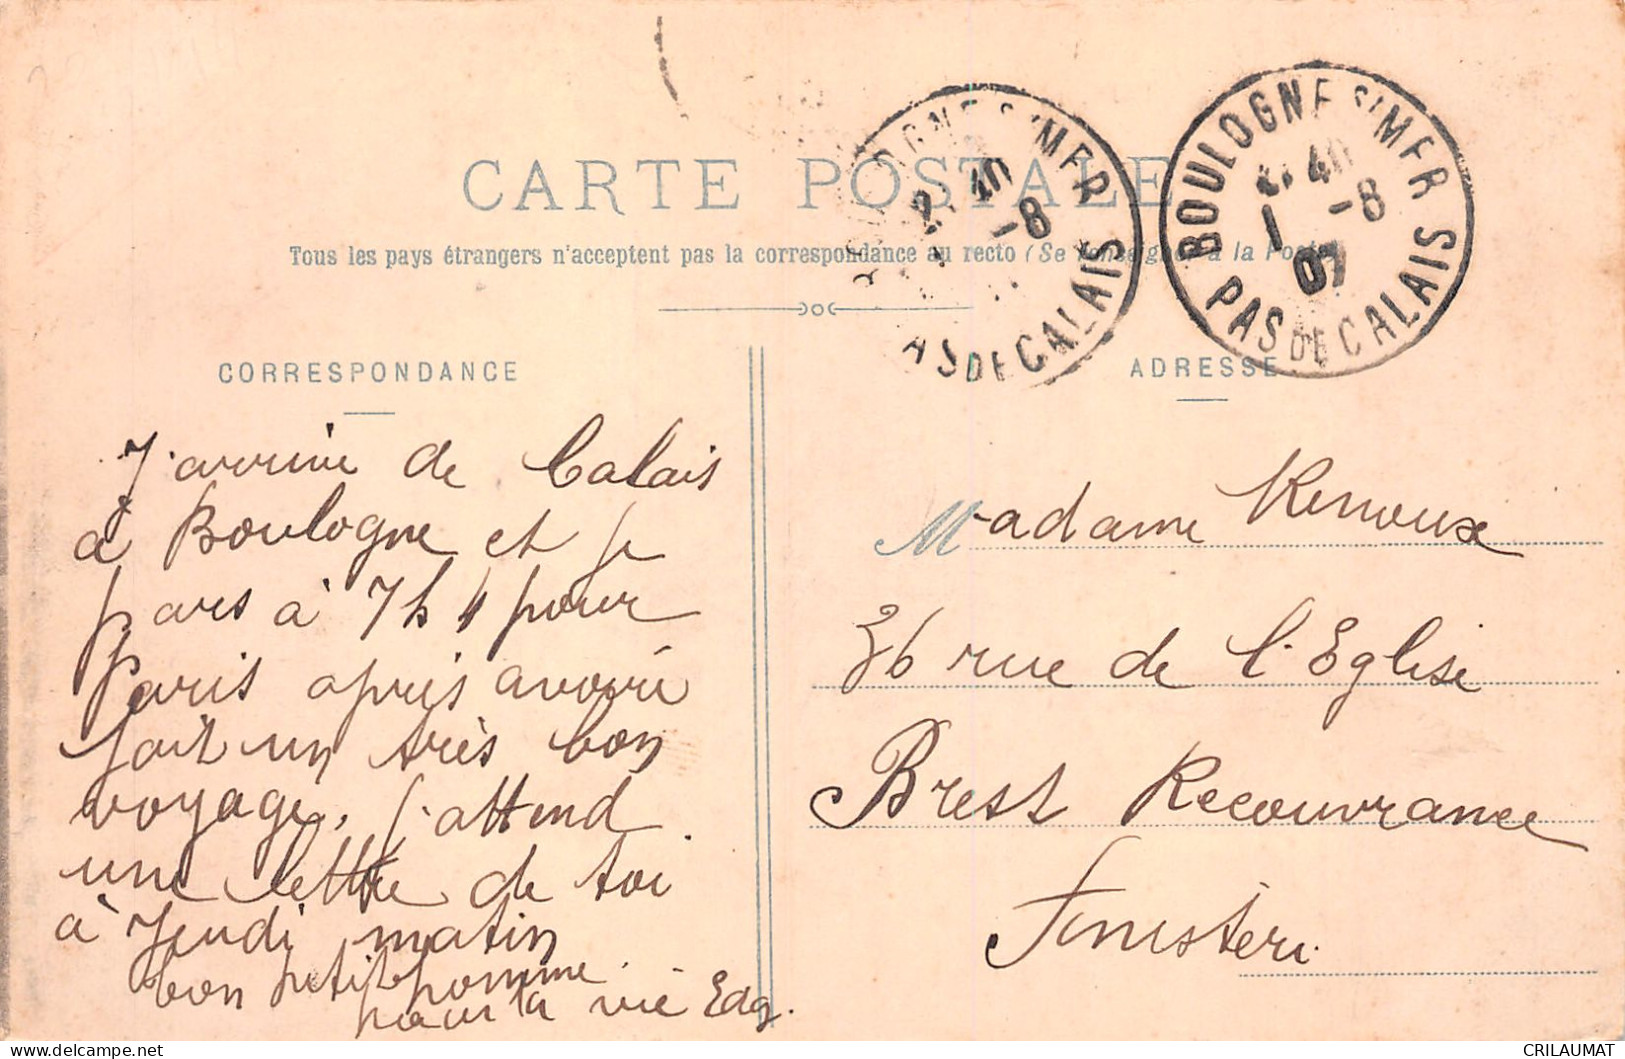 CARTE POSTALE
Tous les pays étrangers n'acceptent pas la correspondance au recto (Se renseigner à la Poste)
BOULOGNE S. MER
2. 40
-8
PAS DE CALAIS
BOULOGNE S. MER
40
1 -8
07
PAS DE CALAIS
CORRESPONDANCE
ADRESSE
J'arrive de Calais
à Boulogne et je
pars à 7h pour
Paris après avoir
fait un très bon
voyage. J'attend
une lettre de toi
à Jeudi matin
bon petit homme.
pour la vie Edg.
Madame Renoux
36 rue de l'Eglise
Brest Recouvrance
Finistère
CRILAUMAT